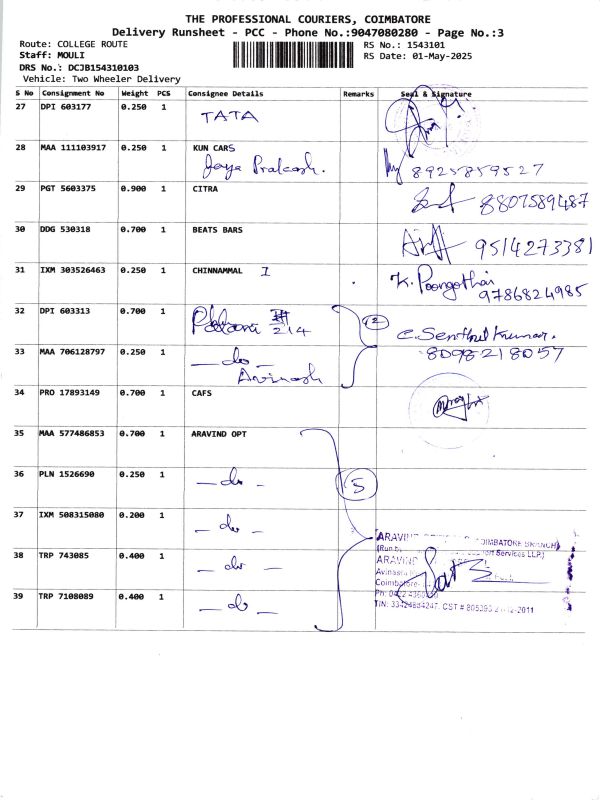 THE PROFESSIONAL COURIERS, COIMBATORE
Delivery Runsheet - PCC - Phone No.:9047080280 - Page No.:3
Route: COLLEGE ROUTE RS No.: 1543101
Staff: MOULI RS Date: 01-May-2025
DRS No.: DCJB154310103
Vehicle: Two Wheeler Delivery
S No Consignment No Weight PCS Consignee Details Remarks Seal & Signature
27 DPI 603177 0.250 1 TATA
28 MAA 111103917 0.250 1 KUN CARS
Jaya Prakash. 8925859527
29 PGT 5603375 0.900 1 CITRA 8807589487
30 DDG 530318 0.700 1 BEATS BARS 9514273381
31 IXM 303526463 0.250 1 CHINNAMMAL I K. Poongothai
9786824985
32 DPI 603313 0.700 1 214 2 C. Senthil Kumar.
33 MAA 706128797 0.250 1 - do - 8098218057
Avinash
34 PRO 17893149 0.700 1 CAFS
35 MAA 577486853 0.700 1 ARAVIND OPT
36 PLN 1526690 0.250 1 - do - 5
37 IXM 508315080 0.200 1 - do -
ARAVIND COIMBATORE BRANCH)
(Run by Services LLP.)
38 TRP 743085 0.400 1 - do - ARAVIND
Avinashi
Coimbatore
39 TRP 7108089 0.400 1 - do - Ph: 0422
TIN: 33424884247, CST # 805393